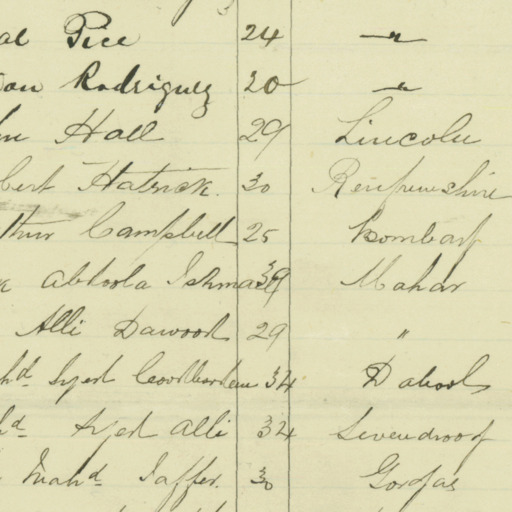 al Pice 24 "
Rodriguez 20 "
Hall 29 Lincoln
bert Hatrick. 30 Renfrewshire
thur Campbell 25 Bombay
Abhoola Ishmael 39 Mahar
Alli Dawood 29 "
hd Syed 34 Dabool
hd Syed Alli 34 Severndroog
Mahd Jaffer. 30